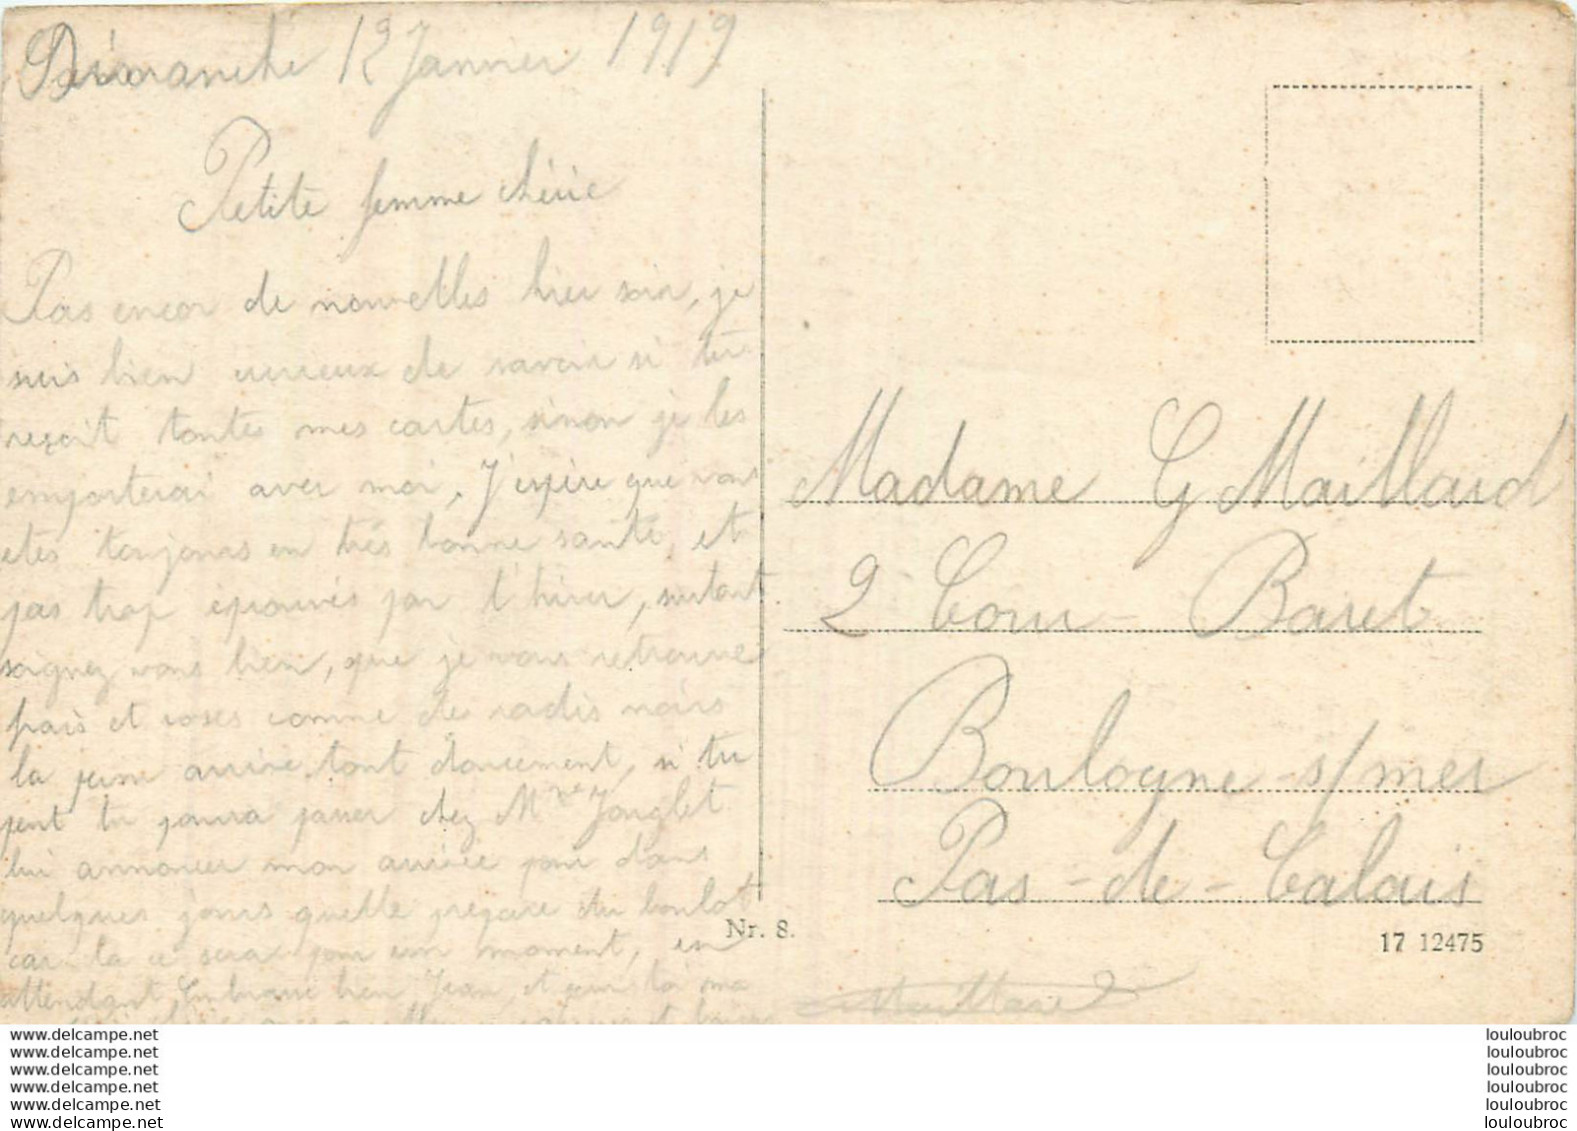 Dimanche 12 Janvier 1919
Petite femme chérie
Pas encor de nouvelles hier soir, je
suis bien curieux de savoir si tu
reçoit toutes mes cartes, sinon je les
emporterai avec moi. J'espère que vous
etes toujours en très bonne santé, et
pas trop éprouvés par l'hiver, surtout
soignez vous bien, que je vous retrouve
frais et roses comme de radis noirs
la jeune arrive tout doucement, si tu
peut tu pourra passer chez Mme Jonglet
lui annoncer mon arrivée pour dans
quelques jours quelle prépare du boulot
car la ce sera pour un moment, en
attendant, Embrasse bien Jean, et pour toi ma
Madame G Maillard
2 Cour Baret
Boulogne s/mer
Pas-de-Calais
Nr. 8.
17 12475
Maillard
www.delcampe.net
www.delcampe.net
www.delcampe.net
www.delcampe.net
www.delcampe.net
www.delcampe.net
louloubroc
louloubroc
louloubroc
louloubroc
louloubroc
louloubroc